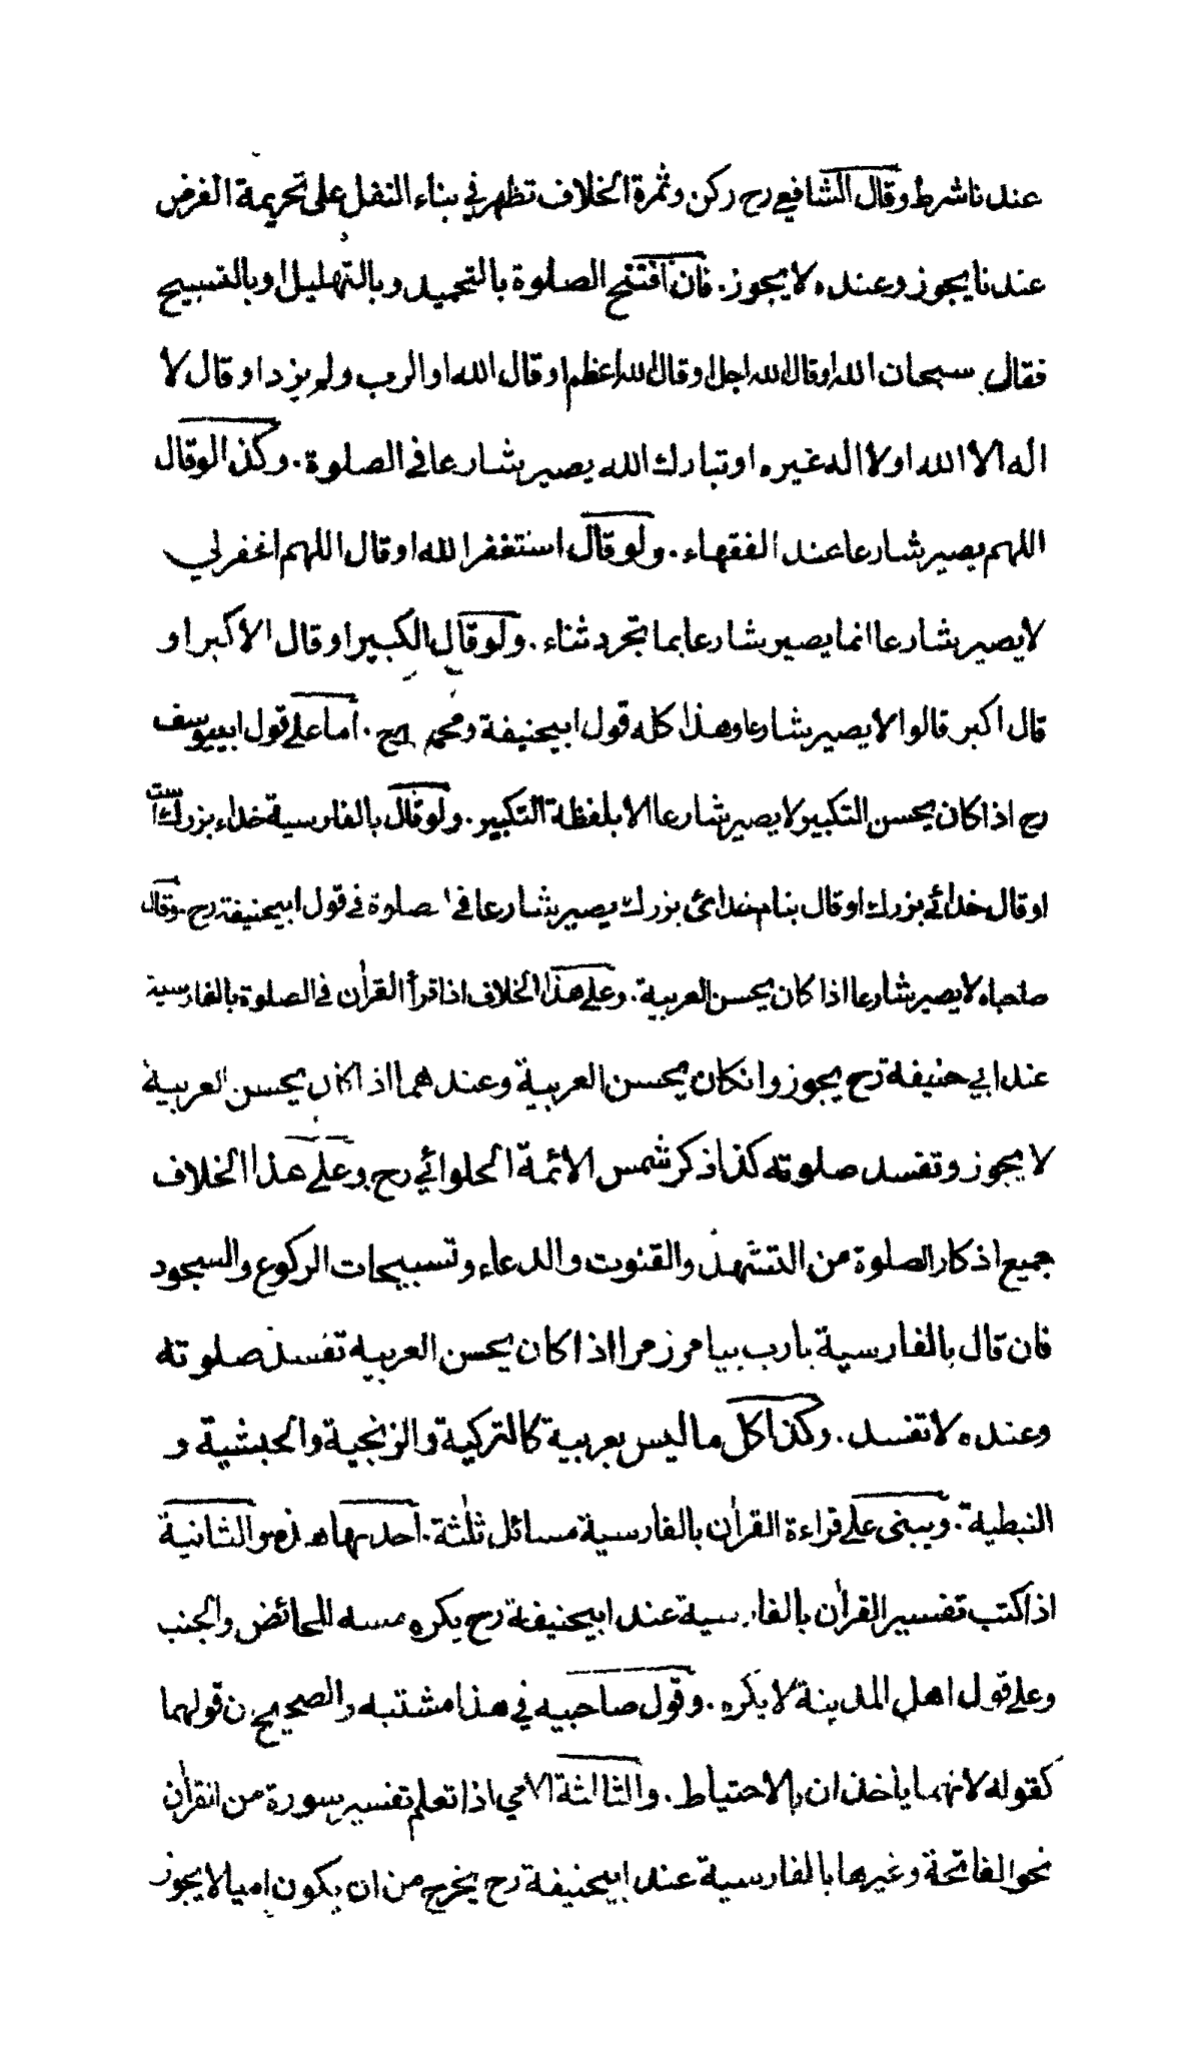 عندنا شرط وقال الشافعي رح ركن وثمرة الخلاف تظهر في بناء النفل على تحريمة الفرض
عندنا يجوز وعنده لا يجوز. فان افتتح الصلوة بالتحميد وبالتهليل او بالتسبيح
فقال سبحان الله او قال الله اجل او قال الله اعظم او قال الله او الرب ولم يزد او قال لا
اله الا الله او لا اله غيره او تبارك الله يصير شارعا في الصلوة. وكذا لو قال
اللهم يصير شارعا عند الفقهاء. ولو قال استغفر الله او قال اللهم اغفر لي
لا يصير شارعا انما يصير شارعا بما تجرد ثناء. ولو قال الكبير او قال الاكبر او
قال اكبر قالوا لا يصير شارعا وهذا كله قول ابيحنيفة ومحمد رح. أما على قول ابييوسف
رح اذا كان يحسن التكبير لا يصير شارعا الا بلفظة التكبير. ولو قال بالفارسية خداء بزرك است
او قال خدائے بزرك او قال بنام خدائ بزرك يصير شارعا في الصلوة في قول ابيحنيفة رح. وقال
صاحباه لا يصير شارعا اذا كان يحسن العربية. وعلى هذا الخلاف اذا قرأ القرأن في الصلوة بالفارسية
عند ابي حنيفة رح يجوز وانكان يحسن العربية وعندهما اذا كان يحسن العربية
لا يجوز وتفسد صلوته كذا ذكر شمس الائمة الحلوائي رح وعلى هذا الخلاف
جميع اذكار الصلوة من التشهد والقنوت والدعاء وتسبيحات الركوع والسجود
فان قال بالفارسية يارب بيامرز مرا اذا كان يحسن العربيه تفسد صلوته
وعنده لا تفسد. وكذا كل ما ليس بعربية كالتركية والزنجية والحبشية و
النبطية. ويبنى على قراءة القرأن بالفارسية مسائل ثلثة. أحدىها هذه والثانية
اذا كتب تفسير القرأن بالفارسية عند ابيحنيفة رح يكره مسه للحائض والجنب
وعلى قول اهل المدينة لا يكره. وقول صاحبيه في هذا مشتبه والصحيح ان قولهما
كقوله لانهما ياخذان بالاحتياط. والثالثة الامي اذا تعلم تفسير سورة من القرأن
نحو الفاتحة وغيرها بالفارسية عند ابيحنيفة رح يخرج من ان يكون اميا لا يجوز